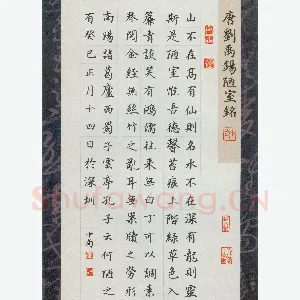 唐劉禹錫陋室銘
山不在高有仙則名水不在深有龍則靈
斯是陋室惟吾德馨苔痕上階綠草色入
簾青談笑有鴻儒往來無白丁可以調素
琴閱金經無絲竹之亂耳無案牘之勞形
南陽諸葛廬西蜀子雲亭孔子云何陋之
有癸巳正月十四日於深圳